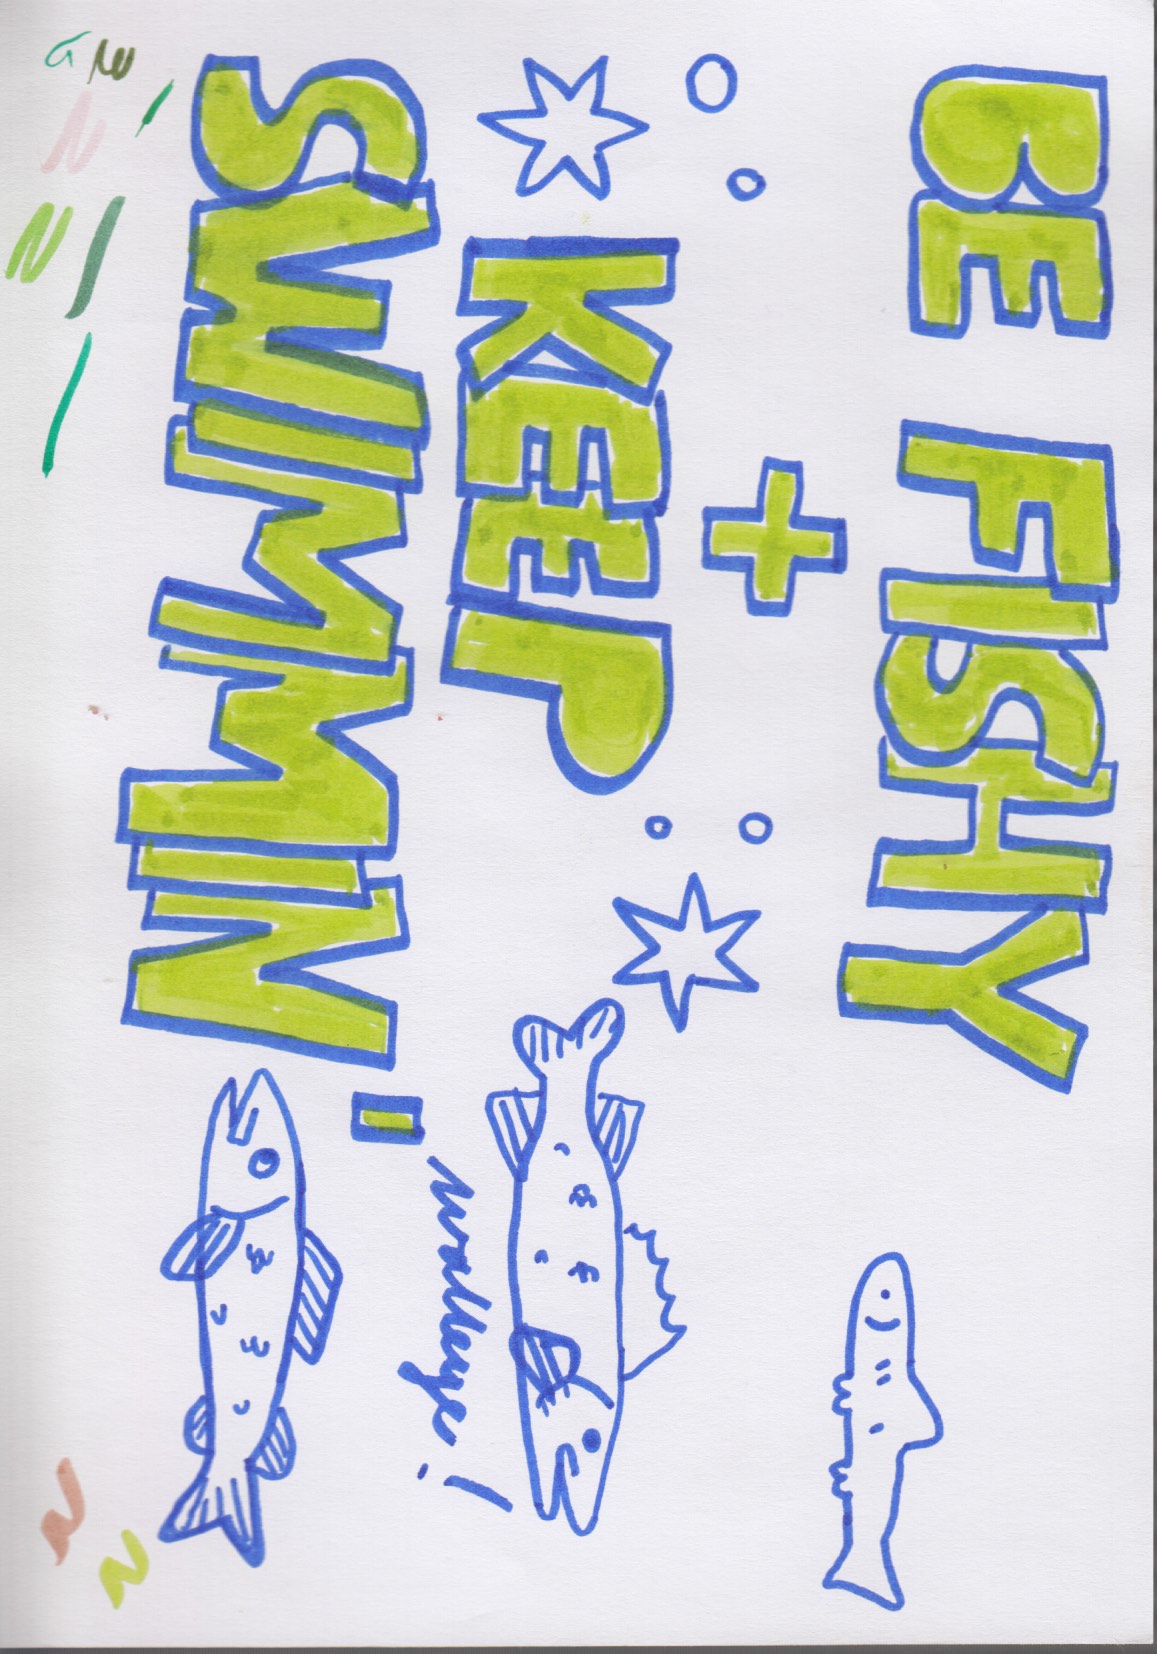 BE FISHY
+
KEEP
SWIMMIN'
walleye!